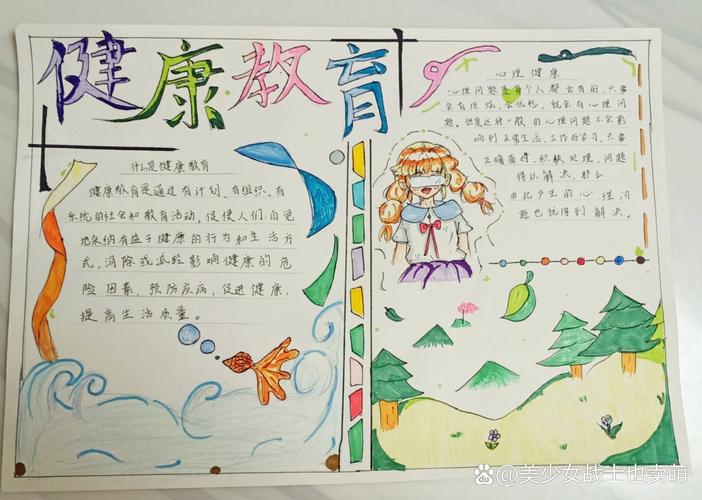 健康教育
什么是健康教育
健康教育是通过有计划、有组织、有
系统的社会和教育活动,促使人们自觉
地采纳有益于健康的行为和生活方
式,消除或减轻影响健康的危
险因素,预防疾病,促进健康,
提高生活质量。
心理健康
心理问题是每个人都会有的,只要
会有烦恼,会忧愁,就会有心理问
题。但是这种一般的心理问题不会影
响到正常生活、工作与学习、只要
正确面对、积极处理,问题
得以解决,那么
由此产生的心理问
题也就得到解决。
Bai du @美少女战士也卖萌